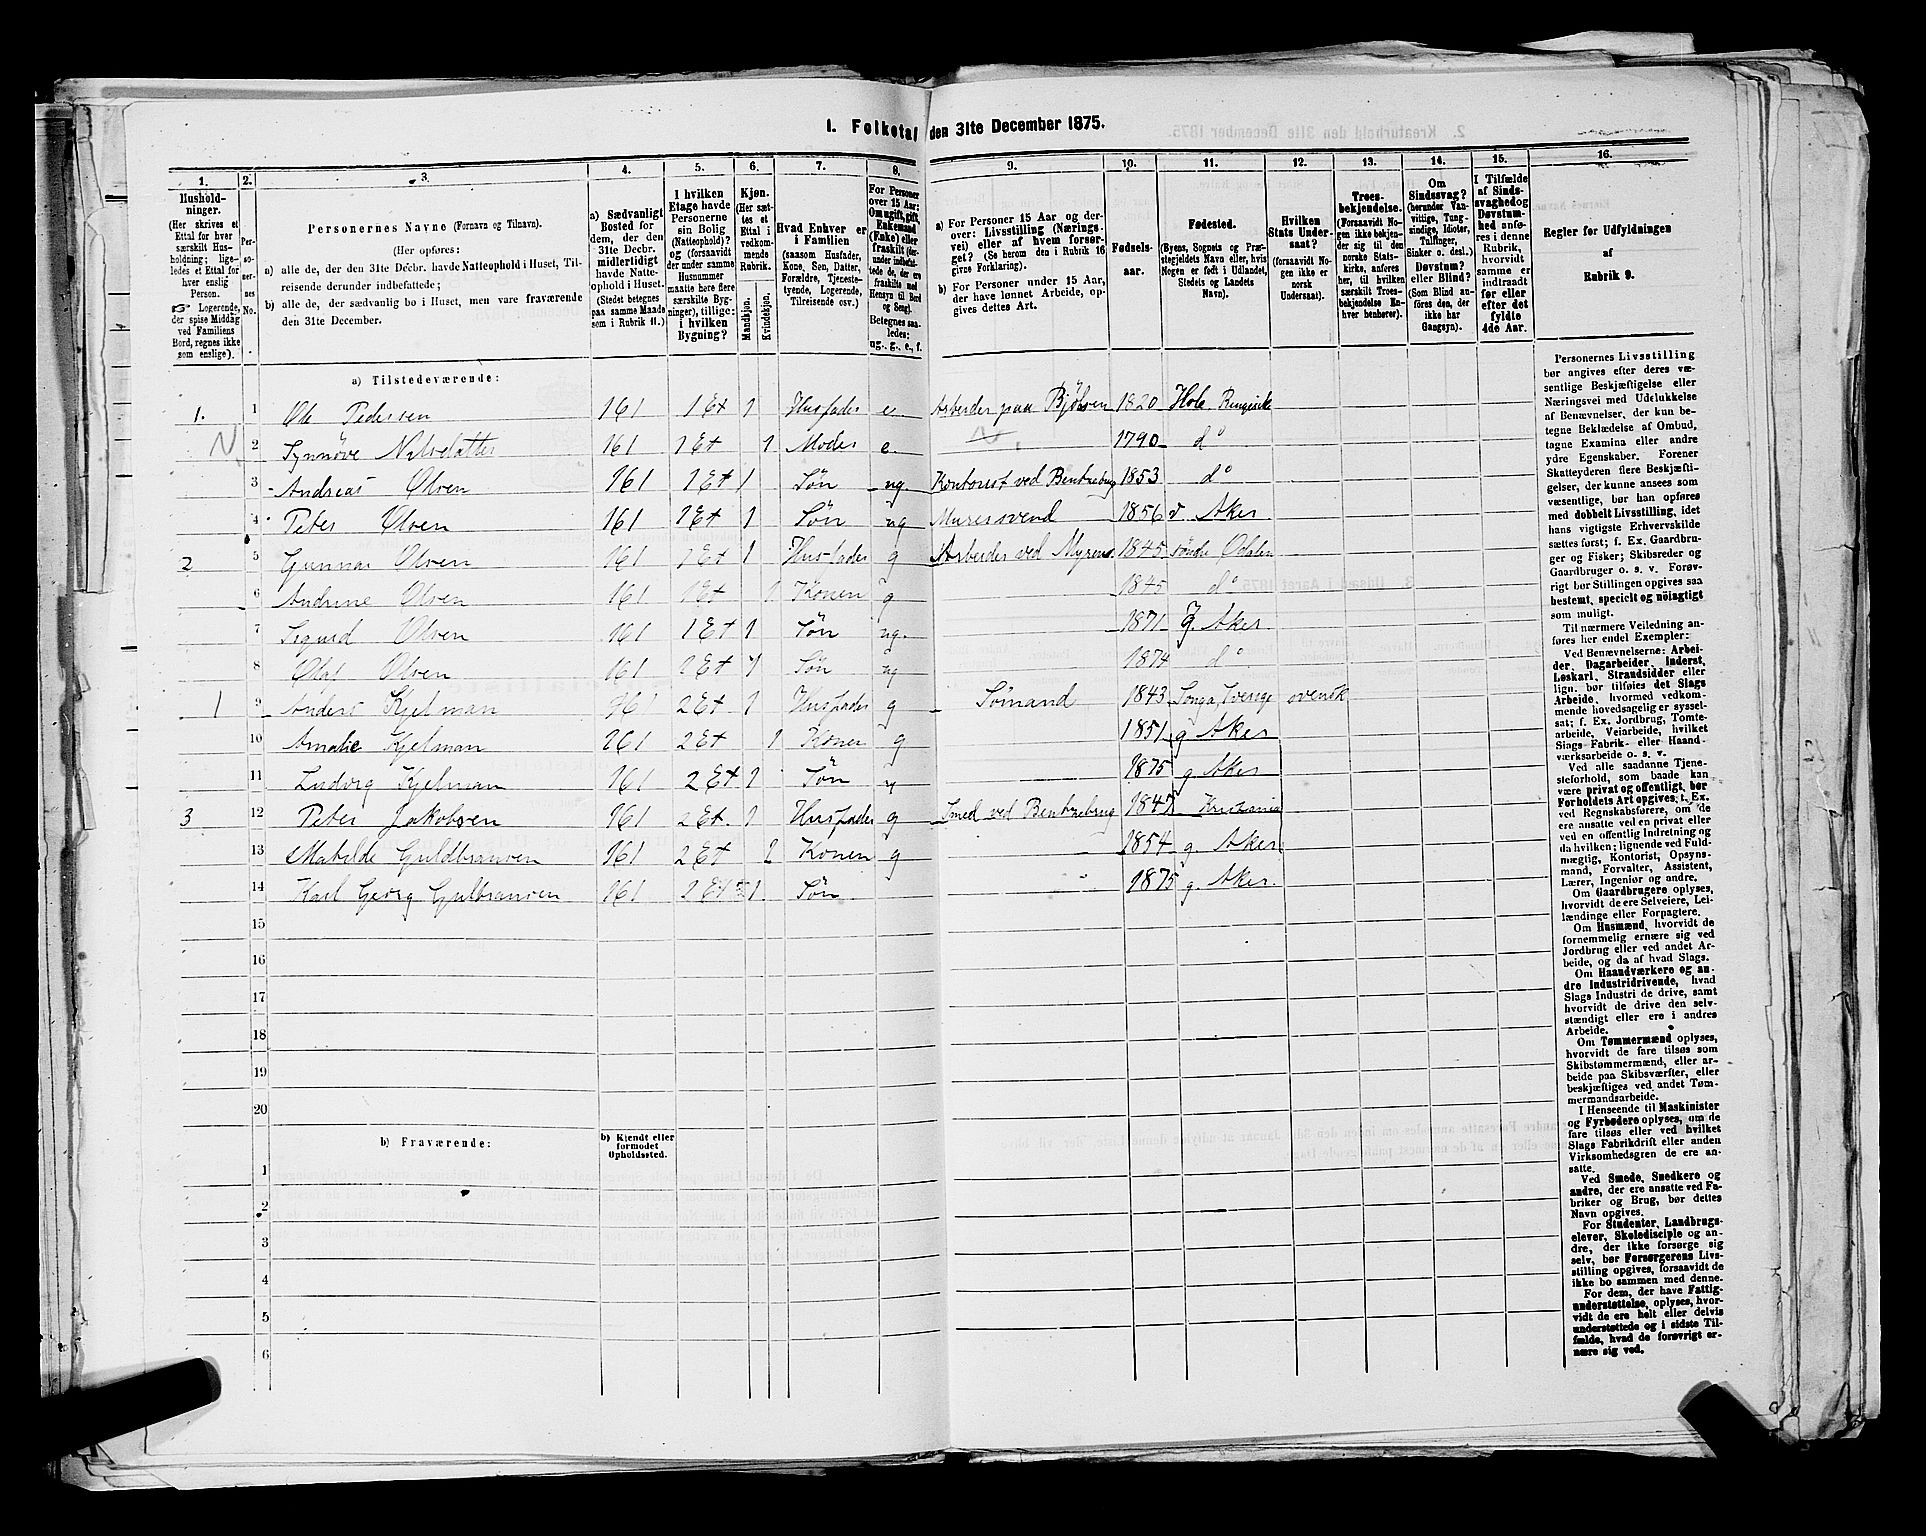 1. Folketal den 31te December 1875.
1. 2. 3. 4. 5. 6. 7. 8. 9. 10. 11. 12. 13. 14. 15. 16.
Husholdninger.
(Her skrives et
Ettal for hver
særskilt Husholdning; ligeledes et Ettal for
hver enslig
Person.
Logerende,
der spise Middag
ved Familiens
Bord, regnes ikke
som enslige).
Personernes No.
Personernes Navne (Fornavn og Tilnavn).
(Her opføres:
a) alle de, der den 31te Decbr. havde Natteophold i Huset, Tilreisende derunder indbefattede;
b) alle de, der sædvanlig bo i Huset, men vare fraværende
den 31te December.
a) Sædvanligt
Bosted for
dem, der den
31te Decbr.
midlertidigt
havde Natteophold i Huset.
(Stedet betegnes
paa samme Maade
som i Rubrik 11.)
I hvilken
Etage havde
Personerne
sin Bolig
(Natteophold)?
og (forsaavidt
der under samme
Husnummer
maatte høre flere
særskilte Bygninger), tillige:
i hvilken
Bygning?
Kjøn.
(Her sættes et
Ettal i
vedkommende
Rubrik.
Mandkjøn.
Kvindekjøn.
Hvad Enhver er
i Familien
(saasom Husfader,
Kone, Søn, Datter,
Forældre, Tjenestetyende, Logerende,
Tilreisende osv.)
For Personer
over 15 Aar:
Om ugift, gift,
Enkemand
(Enke) eller
fraskilt
Betegnes saaledes:
ug., g., e., f.
a) For Personer 15 Aar og derover: Livsstilling (Næringsvei) eller af hvem forsørget? (Se herom den i Rubrik 16
givne Forklaring).
b) For Personer under 15 Aar,
der have lønnet Arbeide, opgives dettes Art.
Fødselsaar.
Fødested.
(Byens, Sognets og Præstegjeldets Navn eller, hvis
Nogen er født i Udlandet,
Stedets og Landets
Navn).
Hvilken
Stats Undersaat?
(forsaavidt Nogen ikke er
norsk
Undersaat).
Troesbekjendelse.
(Forsaavidt Nogen ikke bekjender sig til den
norske Statskirke, anføres
her, til hvilken
særskilt Troesbekjendelse Enhver henhører).
Om
Sindssvag?
(herunder Vanvittige, Tungsindige, Idioter,
Tullinger,
Sinker o. desl.)
Døvstum?
eller Blind?
(Som Blind anføres den, der
ikke har
Gangsyn).
I Tilfælde
af Sindssvaghed og
Døvstumhed anføres i denne
Rubrik,
hvorvidt
samme er
indtraadt
før eller
efter det
fyldte
4de Aar.
Regler for Udfyldningen
af
Rubrik 9.
a) Tilstedeværende:
1. 1 Ole Pedersen 161 1 Et 1 Husfader e. Arbeider paa Bjølsen 1820 Hole Ringerike
2 Synnöve 161 1 Et 1 Moder e. 1790 do
3 Andreas Olsen 161 1 Et 1 Søn ug Kontorist ved Bentsebrug 1853 do
4 Peter Olsen 161 1 Et 1 Søn ug Muresvend 1856 v. Aker
2 5 Gunnar Olsen 161 1 Et 1 Husfader g Arbeider ved Myrens 1845 søndre Odalen
6 Andrine Olsen 161 1 Et 1 Konen g 1845 do
7 Sigurd Olsen 161 1 Et 1 Søn ug. 1871 g. Aker
8 Olaf Olsen 161 1 Et 1 Søn ug 1874 do
1 9 Anders Kjelman 161 2 Et 1 Husfader g Sømand 1843 Sverige svensk
10 Amalie Kjelman 161 2 Et 1 Konen g 1851 g Aker
11 Ludvig Kjelman 161 2 Et 1 Søn 1875 g Aker
3 12 Peter Jakobsen 161 2 Et. 1 Husfader g Smed ved Bentsebrug 1847 Kristiania
13 Matilde Guldbransen 161 2 Et 1 Konen g 1854 g. Aker
14 Karl Georg Gulbransen 161 2 Et 1. Søn 1875 g. Aker.
15
16
17
18
19
20
b) Fraværende:
b) Kjendt eller
formodet
Opholdssted.
1
2
3
4
5
6
Personernes Livsstilling
bør angives efter deres væsentlige Beskjæftigelse eller
Næringsvei med Udelukkelse
af Benævnelser, der kun betegne Beklædelse af Ombud,
tagne Examina eller andre
ydre Egenskaber. Forener
Skatteyderen flere Beskjæftigelser, der kunne ansees som
væsentlige, bør han opføres
med dobbelt Livsstilling, idet
hans vigtigste Erhvervskilde
sættes først; f. Ex. Gaardbruger og Fisker; Skibsreder og
Gaardbruger o. s. v. Forøvrigt bør Stillingen opgives saa
bestemt, specielt og nöiagtigt
som muligt.
Til nærmere Veiledning anføres her endel Exempler:
Ved Benævnelserne: Arbeider, Dagarbeider, Inderst,
Løskarl, Strandsidder eller
lign. bør tilføies det Slags
Arbeide, hvormed vedkommende hovedsagelig er sysselsat; f. Ex. Jordbrug, Tomtearbeide, Veiarbeide, hvilket
Slags Fabrik- eller Haandværksarbeide o. s. v.
Ved alle saadanne Tjenesteforhold, som baade kan
være privat og offentligt, bør
Forholdets Art opgives; f. Ex.
ved Regnskabsførere, om de
ere ansatte ved en privat eller
ved en offentlig Indretning og
da hvilken; lignende ved Fuldmægtig, Kontorist, Opsynsmand, Forvalter, Assistent,
Lærer, Ingeniør og andre.
Om Gaardbrugere oplyses,
hvorvidt de ere Selveiere, Leilændinge eller Forpagtere.
Om Husmænd, hvorvidt de
fornemmelig ernære sig ved
Jordbrug eller ved andet Arbeide, og da af hvad Slags.
Om Haandværkere og andre Industridrivende, hvad
Slags Industri de drive, samt
hvorvidt de drive den selvstændigt eller ere i andres
Arbeide.
Om Tømmermænd oplyses,
hvorvidt de fare tilsøs som
Skibstømmermænd, eller arbeide paa Skibsværfter, eller
beskjæftiges ved andet Tømmermandsarbeide.
I Henseende til Maskinister
og Fyrbødere oplyses, om de
fare tilsøs eller ved hvilket
Slags Fabrikdrift eller anden
Virksomhedsgren de ere ansatte.
Ved Smede, Snedkere og
andre, der ere ansatte ved Fabriker og Brug, bør dettes
Navn opgives.
For Studenter, Landbrugselever, Skoledisciple og andre, der ikke forsørge sig
selv, bør Forsørgerens Livsstilling opgives, forsaavidt de
ikke bo sammen med denne.
For dem, der have Fattigunderstøttelse, oplyses, hvorvidt de ere helt eller delvis
understøttede og i sidste Tilfælde, hvad de forøvrigt ernære sig ved.